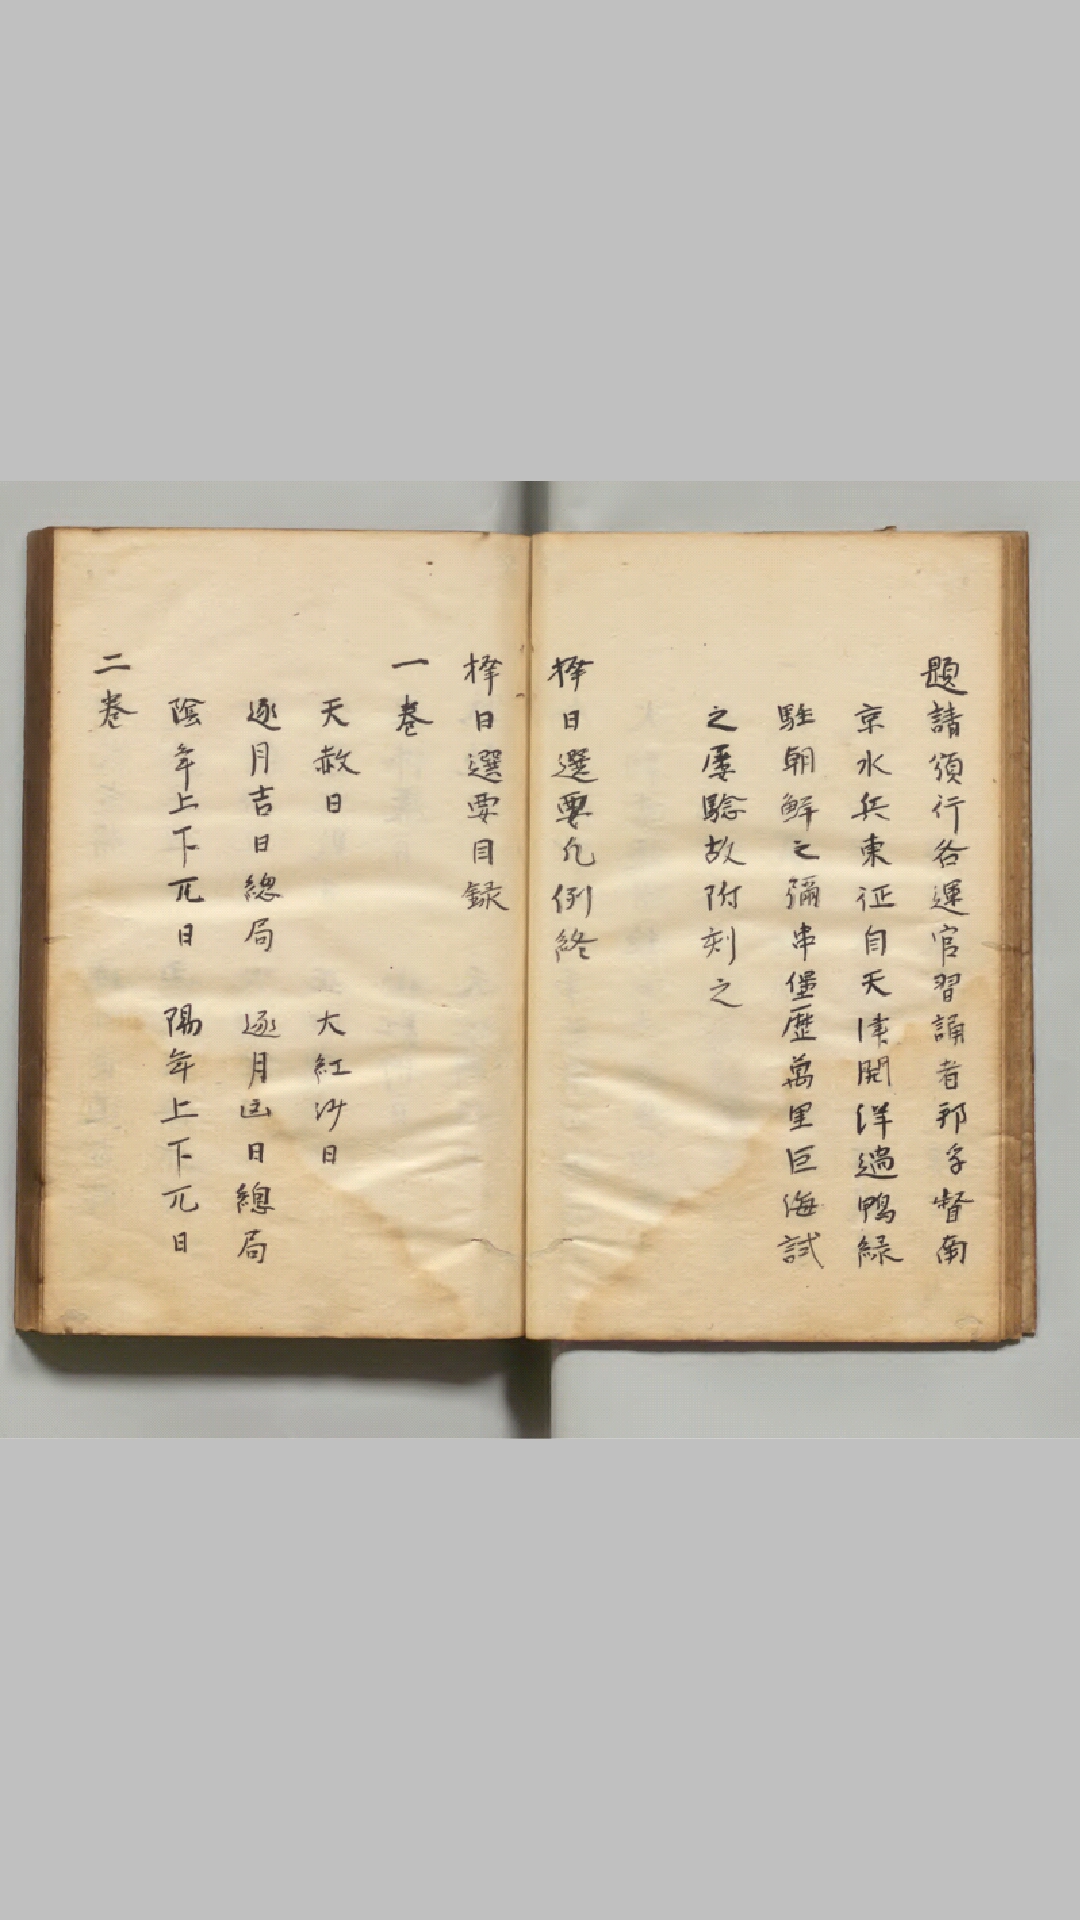 題請頒行各運官習誦者邢子督南
京水兵東征自天津開洋過鴨綠
駐朝鮮之彌串堡歷萬里巨海試
之屢驗故附刻之
擇日選要凡例終
擇日選要目録
一卷
天赦日 大紅沙日
逐月吉日總局 逐月凶日總局
陰年上下兀日 陽年上下兀日
二卷